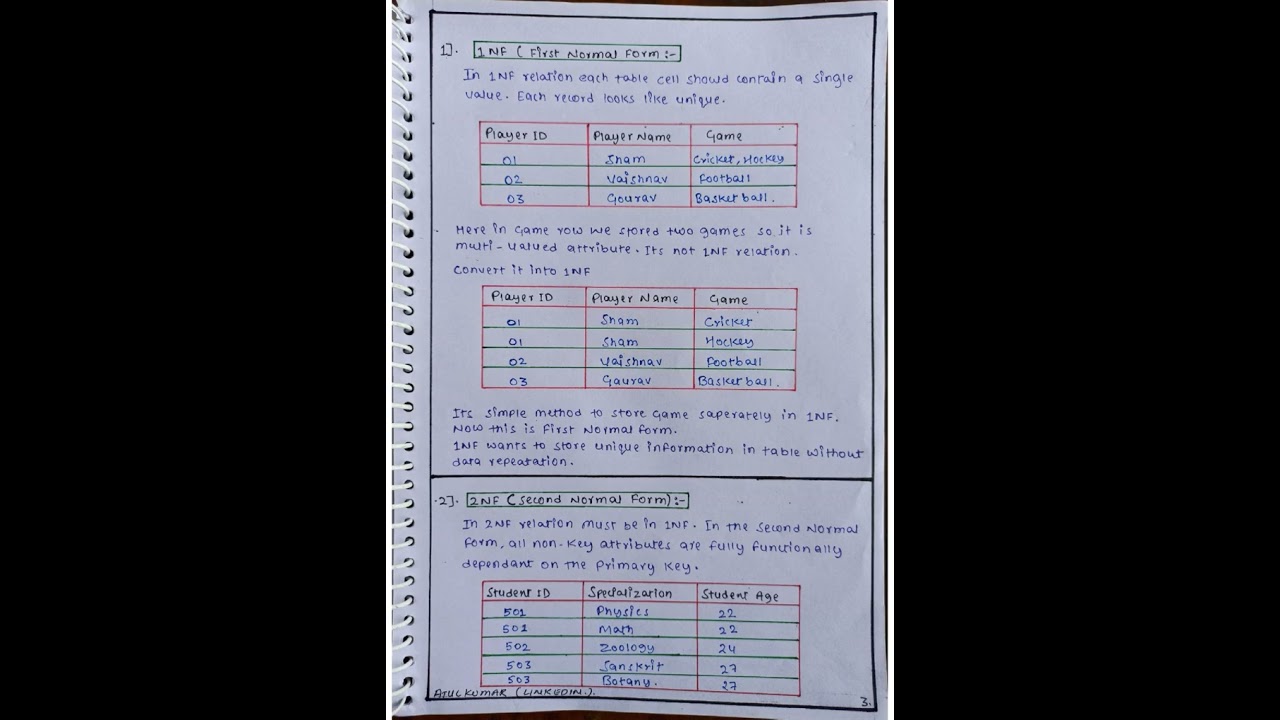 1]. 1NF ( First Normal Form :-
In 1NF relation each table cell should contain a single
value. Each record looks like unique.
Player ID Player Name Game
01 Sham Cricket, Hockey
02 Vaishnav Football
03 Gourav Basket ball.
Here in Game row we stored two games so it is
multi-valued attribute. Its not 1NF relation.
Convert it into 1NF
Player ID Player Name Game
01 Sham Cricket
01 Sham Hockey
02 Vaishnav Football
03 Gaurav Basket ball.
Its simple method to store Game saperately in 1NF.
Now this is First Normal form.
1NF wants to store unique information in table without
data repeatation.
2]. 2NF (Second Normal Form) :-
In 2NF relation must be in 1NF. In the Second Normal
Form, all non-key attributes are fully functionally
dependant on the Primary key.
Student ID Specialization Student Age
501 Physics 22
501 Math 22
502 Zoology 24
503 Sanskrit 27
503 Botany. 27
ATULKUMAR (LINKEDIN.).
3.